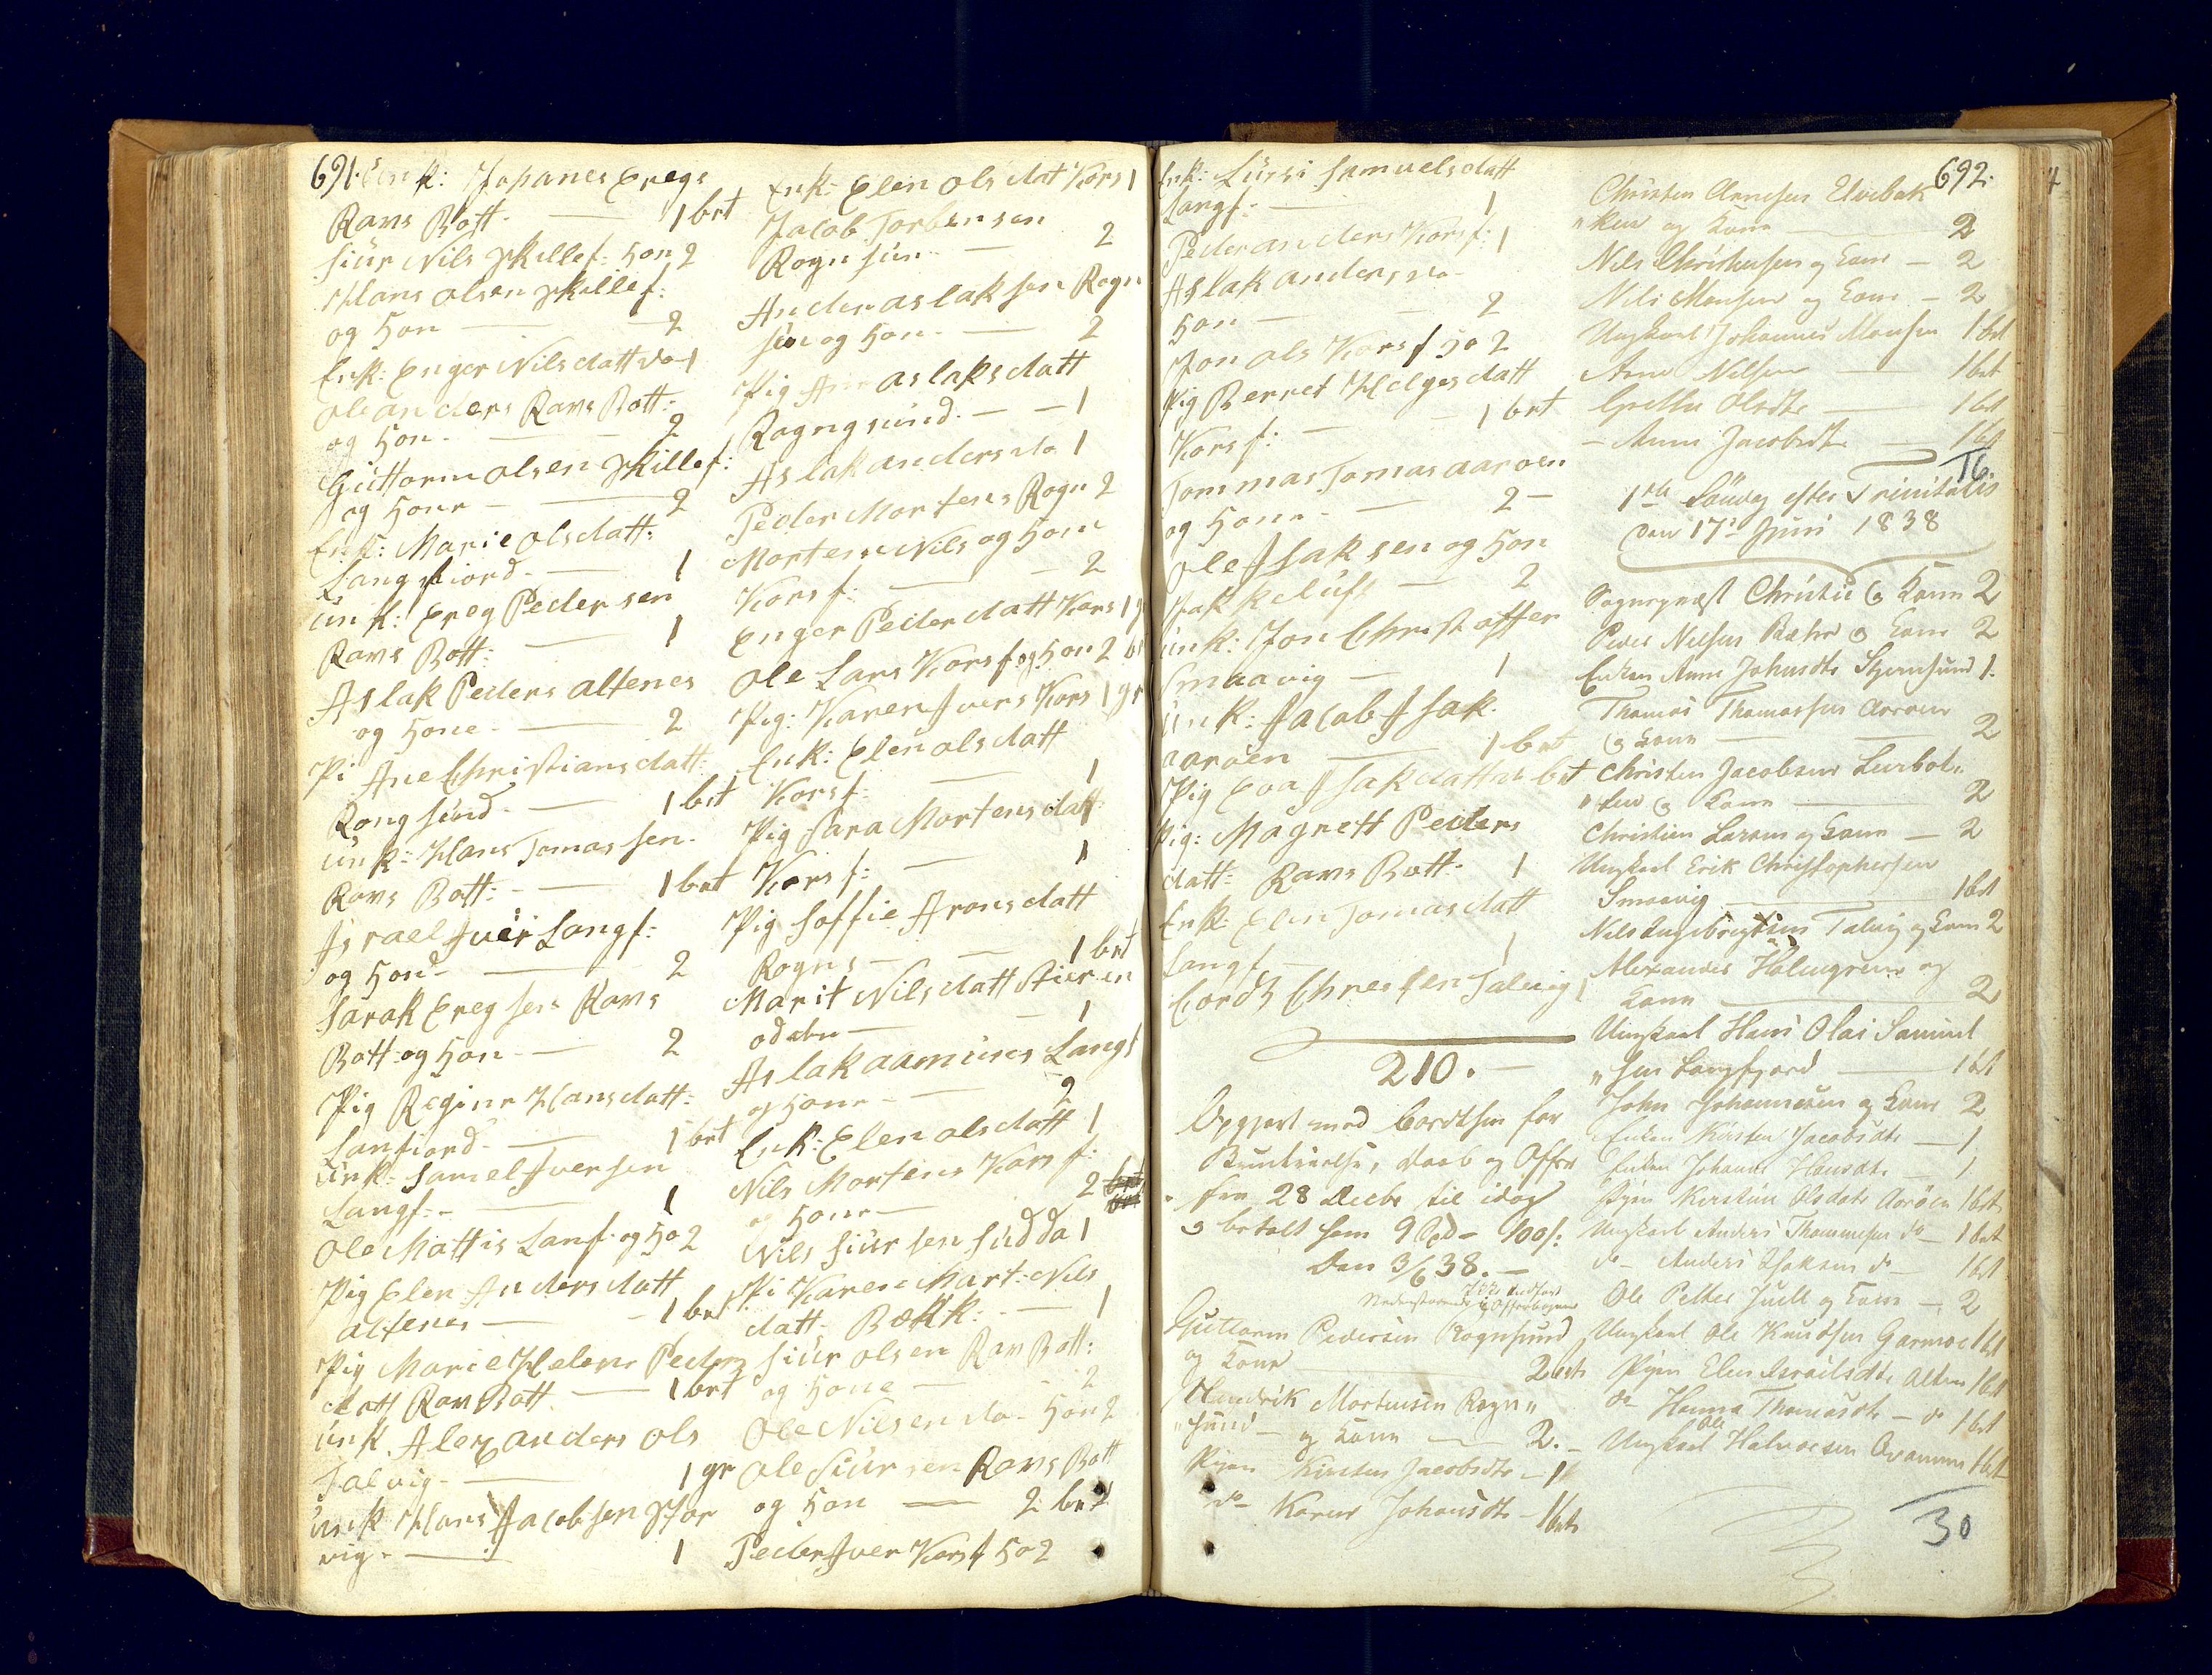 691.
Unk: Johanes Eregs
Ravs Bott. — 1 brt
Siur Nils Skillef: Hon 2
Hans olsen Skillef:
og Hon — 2
Enk: Enger Nils datt do 1
ole anders Ravs Bott:
og Hon. — 2
Guttorm olsen Skillef:
og Hone — 2
Enk: Marie ols datt:
Langfiord. — 1
unk: Ereg Pedersen
Ravs Bott: — 1
Aslak Peders altenes
og Hone. — 2
Pi Ane Christians datt:
Rong sund. — 1 brt
unk: Hans Tomas sen.
Ravs Bott: — 1 brt
Israel Iver Langf:
og Hond. — 2
Sarak Ereg sen Ravs
Bott: og Hon. — 2
Pig Regine Hans datt:
Lanfiord. — 1 brt
unk. Samel Iver sen
Langf: — 1
Ole Mattis Lanf: og Ho 2
Pig Elen Anders datt
altenes — 1 brt
Pig Marie Helene Peders
datt Ravs Bott. — 1 brt
unk. Alexanders ols
Talvig. — 1 gr
unk Hans Jacobsen
vig. — 1
Enk: Elen ols dat Kors 1
Jacob Torbensen
Rogn sun — 2
Ander aslaksen Rogn
sun og Hon. — 2
Pig Ane aslaks datt
Rogngsund. — 1
Aslak anders do 1
Peder Mortens Rogn 2
Morten Nils og Hon
Kors f: — 2
Enger Peder datt Kors 1 g
Ole Lars Korsf og Hon 2 b
Pig: Karen Ivers Kors 1 gr
Enk: Elen ols datt
Kors f: — 1
Pig Sara Mortens datt
Kors f: — 1
Pig Soffie Arons datt
Rogns — 1 brt
Marit Nils datt
— 1
Aslak aamunes Langf
og Hone — 2
Enk: Elen ols datt 1
Nils Mortens Kors f:
og Hone — 2
Nils Siur sen 1
Pi Karen Mart: Nils
datt. Bækk: — 1
Siur olsen Rav Bott:
og Hone — 2
Ole Nilsen do. Hon 2
Ole Siur sen Ravs Bott
og Hon — 2 brt
Peder Iver Kors f Ho 2
Enk: Lussi Samuels datt
Langf: — 1
Peder anders Kors f: 1
Aslak anders, do
Hon — 2
Jon ols Kors f Ho 2
Pig Berret Helges datt
Kors f: — 1 brt
Tommas Tomas aaroen
og Hone. — 2 —
Ole Isaksen og Hon
— 2
unk: Jon Christoffer
Smaavig — 1
unk: Jacob Isak.
aaroen — 1 brt
Pig Eva Isak datt brt
Pig: Magrett Peders
datt: Ravs Bott. 1
Enk: Elen Tomas datt
Langf — 1
Cordz Chresten Talvig 1
210. —
Opgjort med Cordtsen for
Brudvielse, Daab og Offer
fra 28 Decbr til idag
betalt ham 9 Spd 100 s:
Den 3/6 38. —
Guttorm Pedersen Rognsund
og Kone — 2 brt
Hendrik Mortensen Rogn„
„sund — og Kone — 2. —
Pigen Kirsten Jacobsdtr — 1
do — Karen Johansdtr — 1 brt
692.
Christen Arnesen Elvebak
„ken og Kone — 2
Nils Christensen og Kone — 2
Nils Monsen og Kone — 2
Ungkarl Johannes Monsen 1 brt
Arne Nilsen — 1 brt
Grethe Olsdtr — 1 brt
— Anne Jacobsdtr — 1 brt
16.
1ste Søndag efter Trinitatis
den 17de Juni 1838
Sogneprest Christie & Kone 2
Peder Nielsen Bæhr & Kone 2
Enken Anne Johnsdtr Stjernsund 1.
Thomas Thomassen Aarøen
& Kone — 2
Christen Jacobsen Leerbot„
„ten & Kone — 2
Christian Larsen og Kone — 2
Ungkarl Erik Christophersen
Smaavig — 1 brt
Nils Ingebrigtsen Talvig og Kone 2
Alexander Holmgren og
Kone — 2
Ungkarl Hans Olai Samuel
„sen Langfjord — 1 brt
John Johannesen og Kone 2
Enken Kirsten Jacobsdtr — 1
Enken Johanne Hansdtr — 1
Pigen Kirstine Olsdatr Aarøen 1 brt
Ungkarl Anders Thommesen do — 1 brt
do — Anders Isaksen do — 1 brt
Ole Petter Juell og Kone — 2
Ungkarl Ole Knudsen 1 brt
Pigen Elen Israelsdtr Alten 1 brt
do — Hanna Thomasdtr — do 1 brt
Ungkarl Ole Halvorsen 1 brt
30